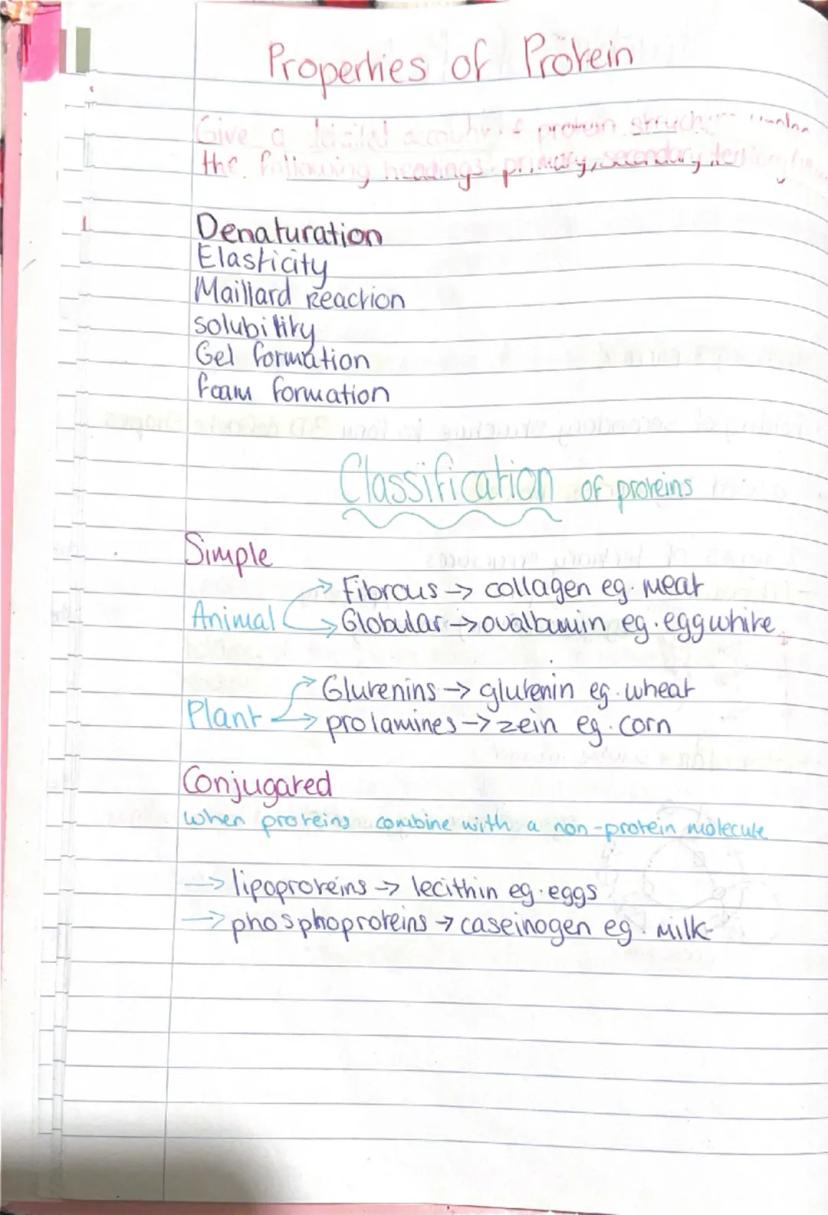 Properties of Protein
Give a detailed account of protein structure under
the following headings primary, secondary, tertiary
Denaturation
Elasticity
Maillard reaction
solubility
Gel formation
foam formation
Classification of proteins
Simple
Fibrous → collagen eg. meat
Animal
Globular → ovalbumin eg. egg white
Glutenins → glutenin eg. wheat
Plant
prolamines → zein eg. corn
Conjugated
when proteins combine with a non-protein molecule
→ lipoproteins → lecithin eg. eggs
→ phosphoproteins → caseinogen eg. milk